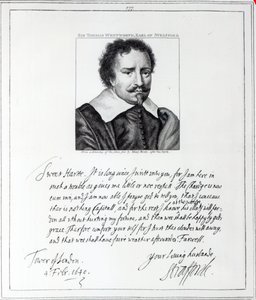 177
SIR THOMAS WENTWORTH, EARL OF STRAFFORD.
Sweet Harte. It is long since I writt unto you, for I am here in
such a trouble as gives me little or noe respett. The chardge is now
cum inn, and I am now able I prayse god to tell you, that I conceave
ther is nothing Capitall, and for the rest I knowe at the worste
his Maty will pardon all without hurting my fortune, and then we shall be happy by gods
grace. Therefore comfort your self, for I trust thes cloudes will away,
and that wee shall have faire weather afterwardes. Farewell.
Tower of London. Your loving husbande
4 Feb. 1640. Strafforde